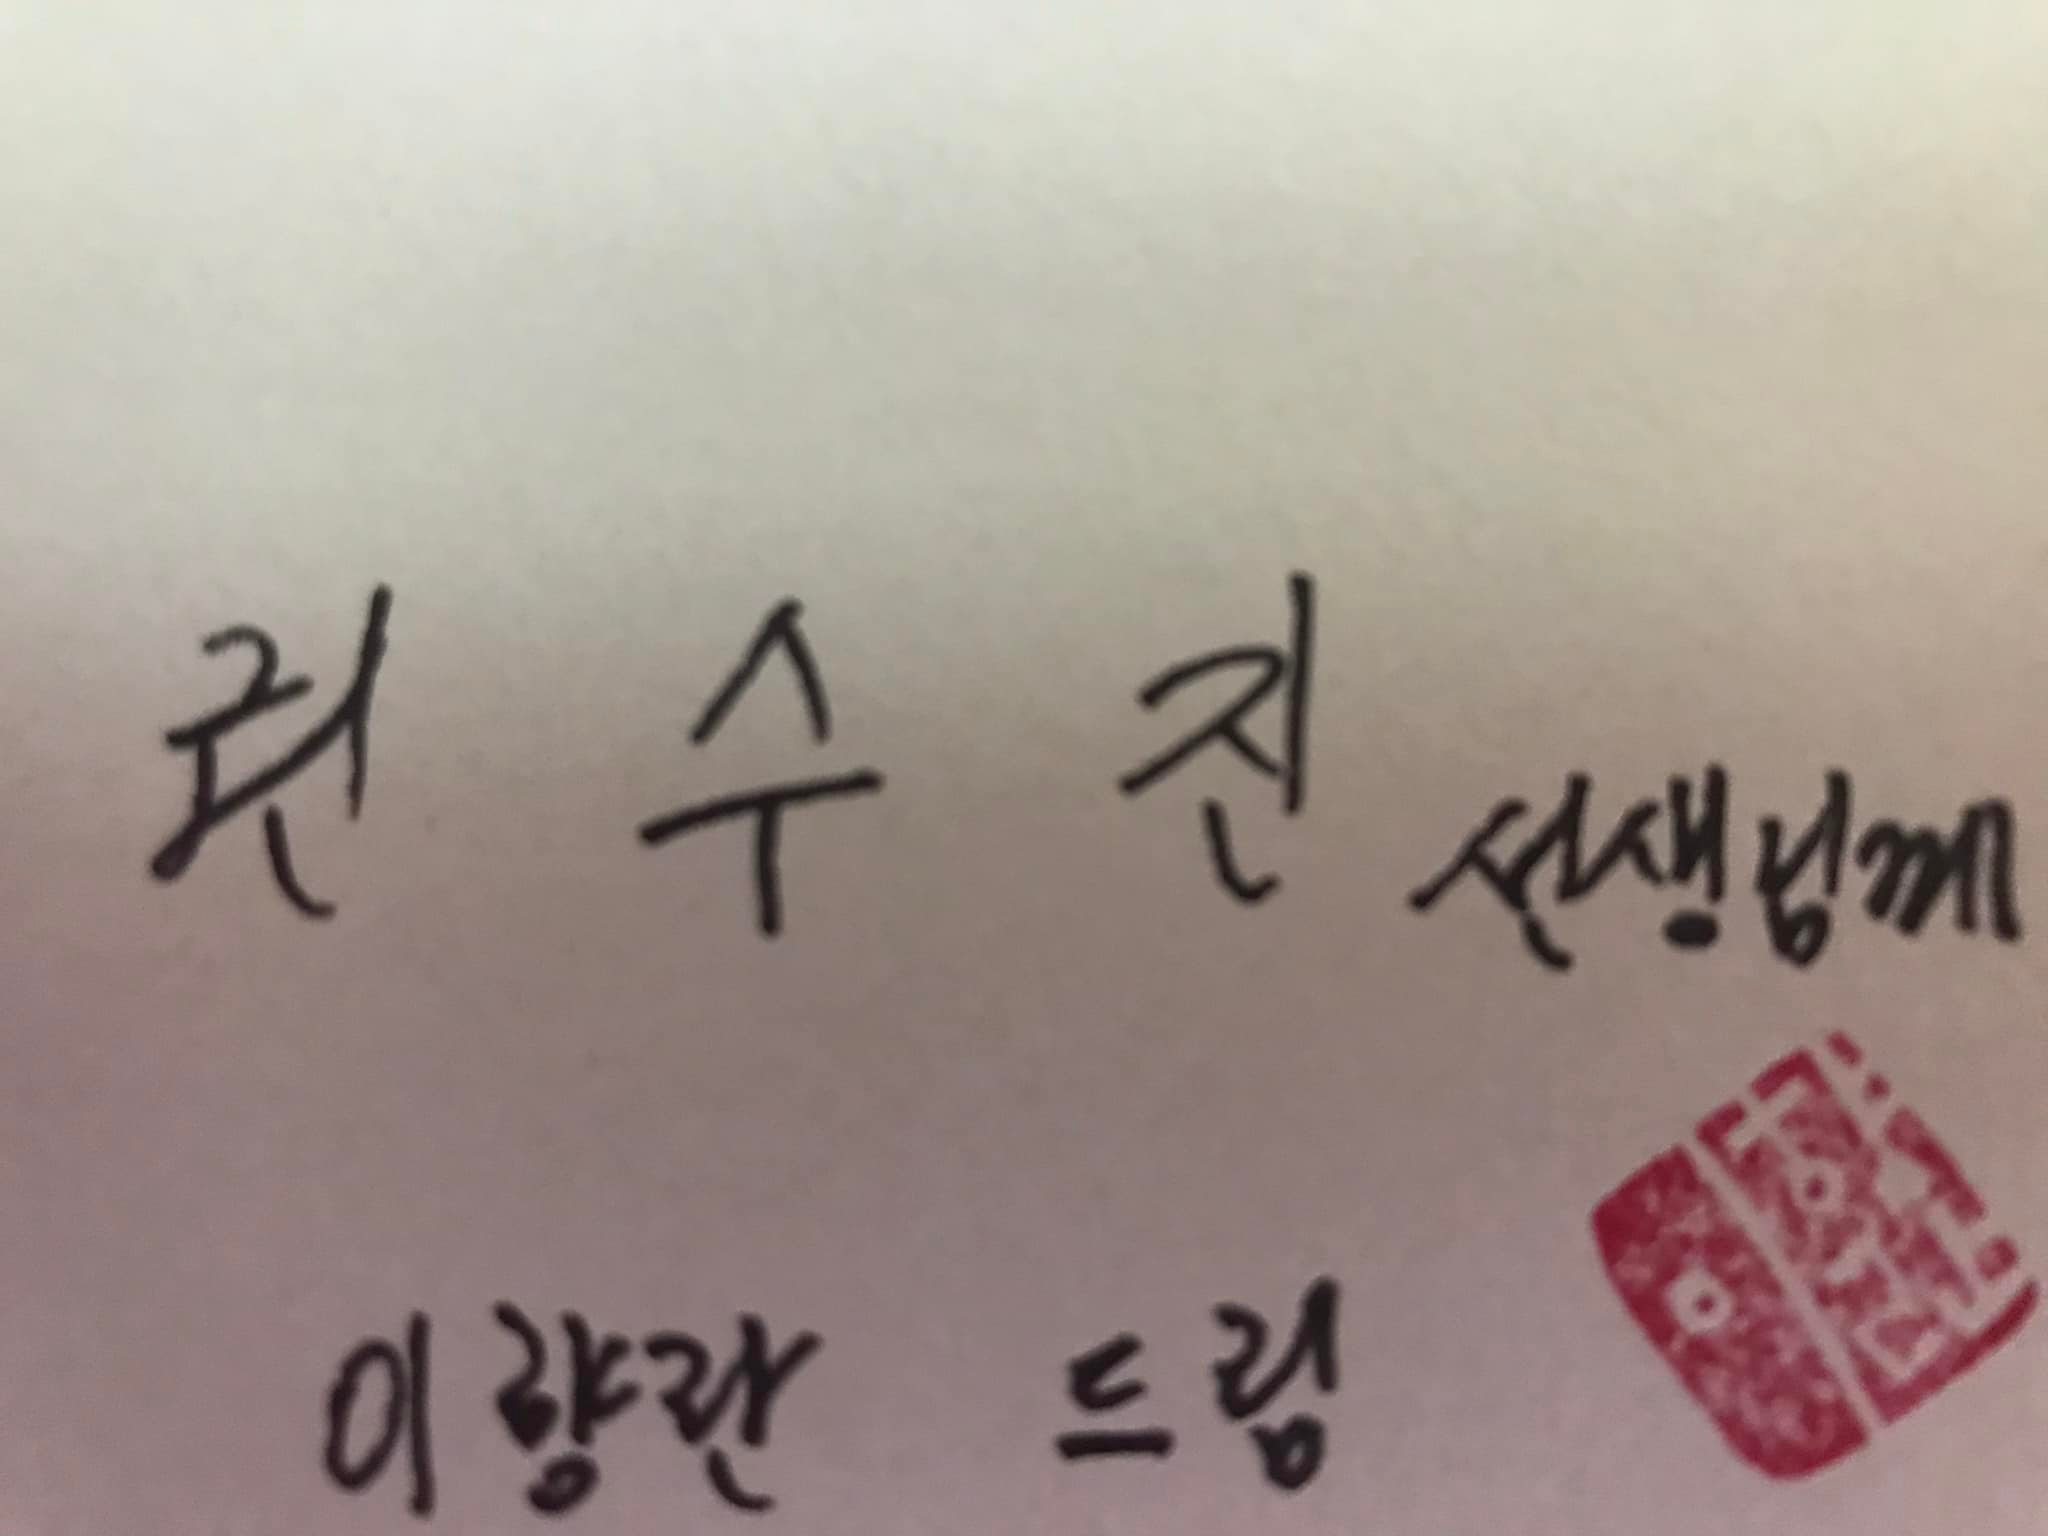 권 수 진 선생님께
이향란 드림